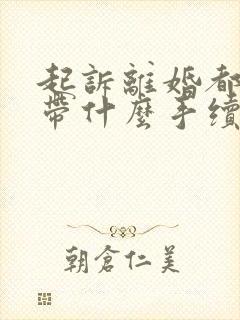 起訴離婚都
帶什麼手續
朝倉仁美